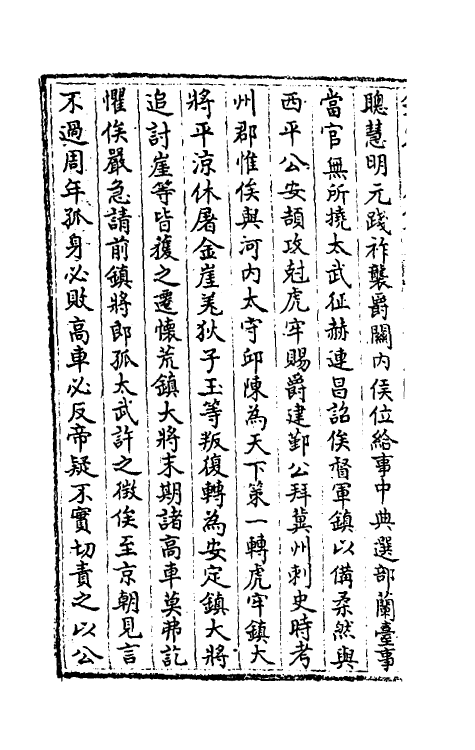 聰慧明元踐祚襲爵關內侯位給事中典選部蘭臺事
當官無所撓太武征赫連昌詔俟督軍鎮以備柔然與
西平公安頡攻尅虎牢賜爵建鄴公拜冀州刺史時考
州郡惟俟與河內太守邱陳為天下第一轉虎牢鎮大
將平涼休屠金崖羌狄子玉等叛復轉為安定鎮大將
追討崖等皆獲之遷懷荒鎮大將未期諸高車莫弗訖
懼俟嚴急請前鎮將郎孤太武許之徵俟至京朝見言
不過周年孤身必敗高車必反帝疑不實切責之以公